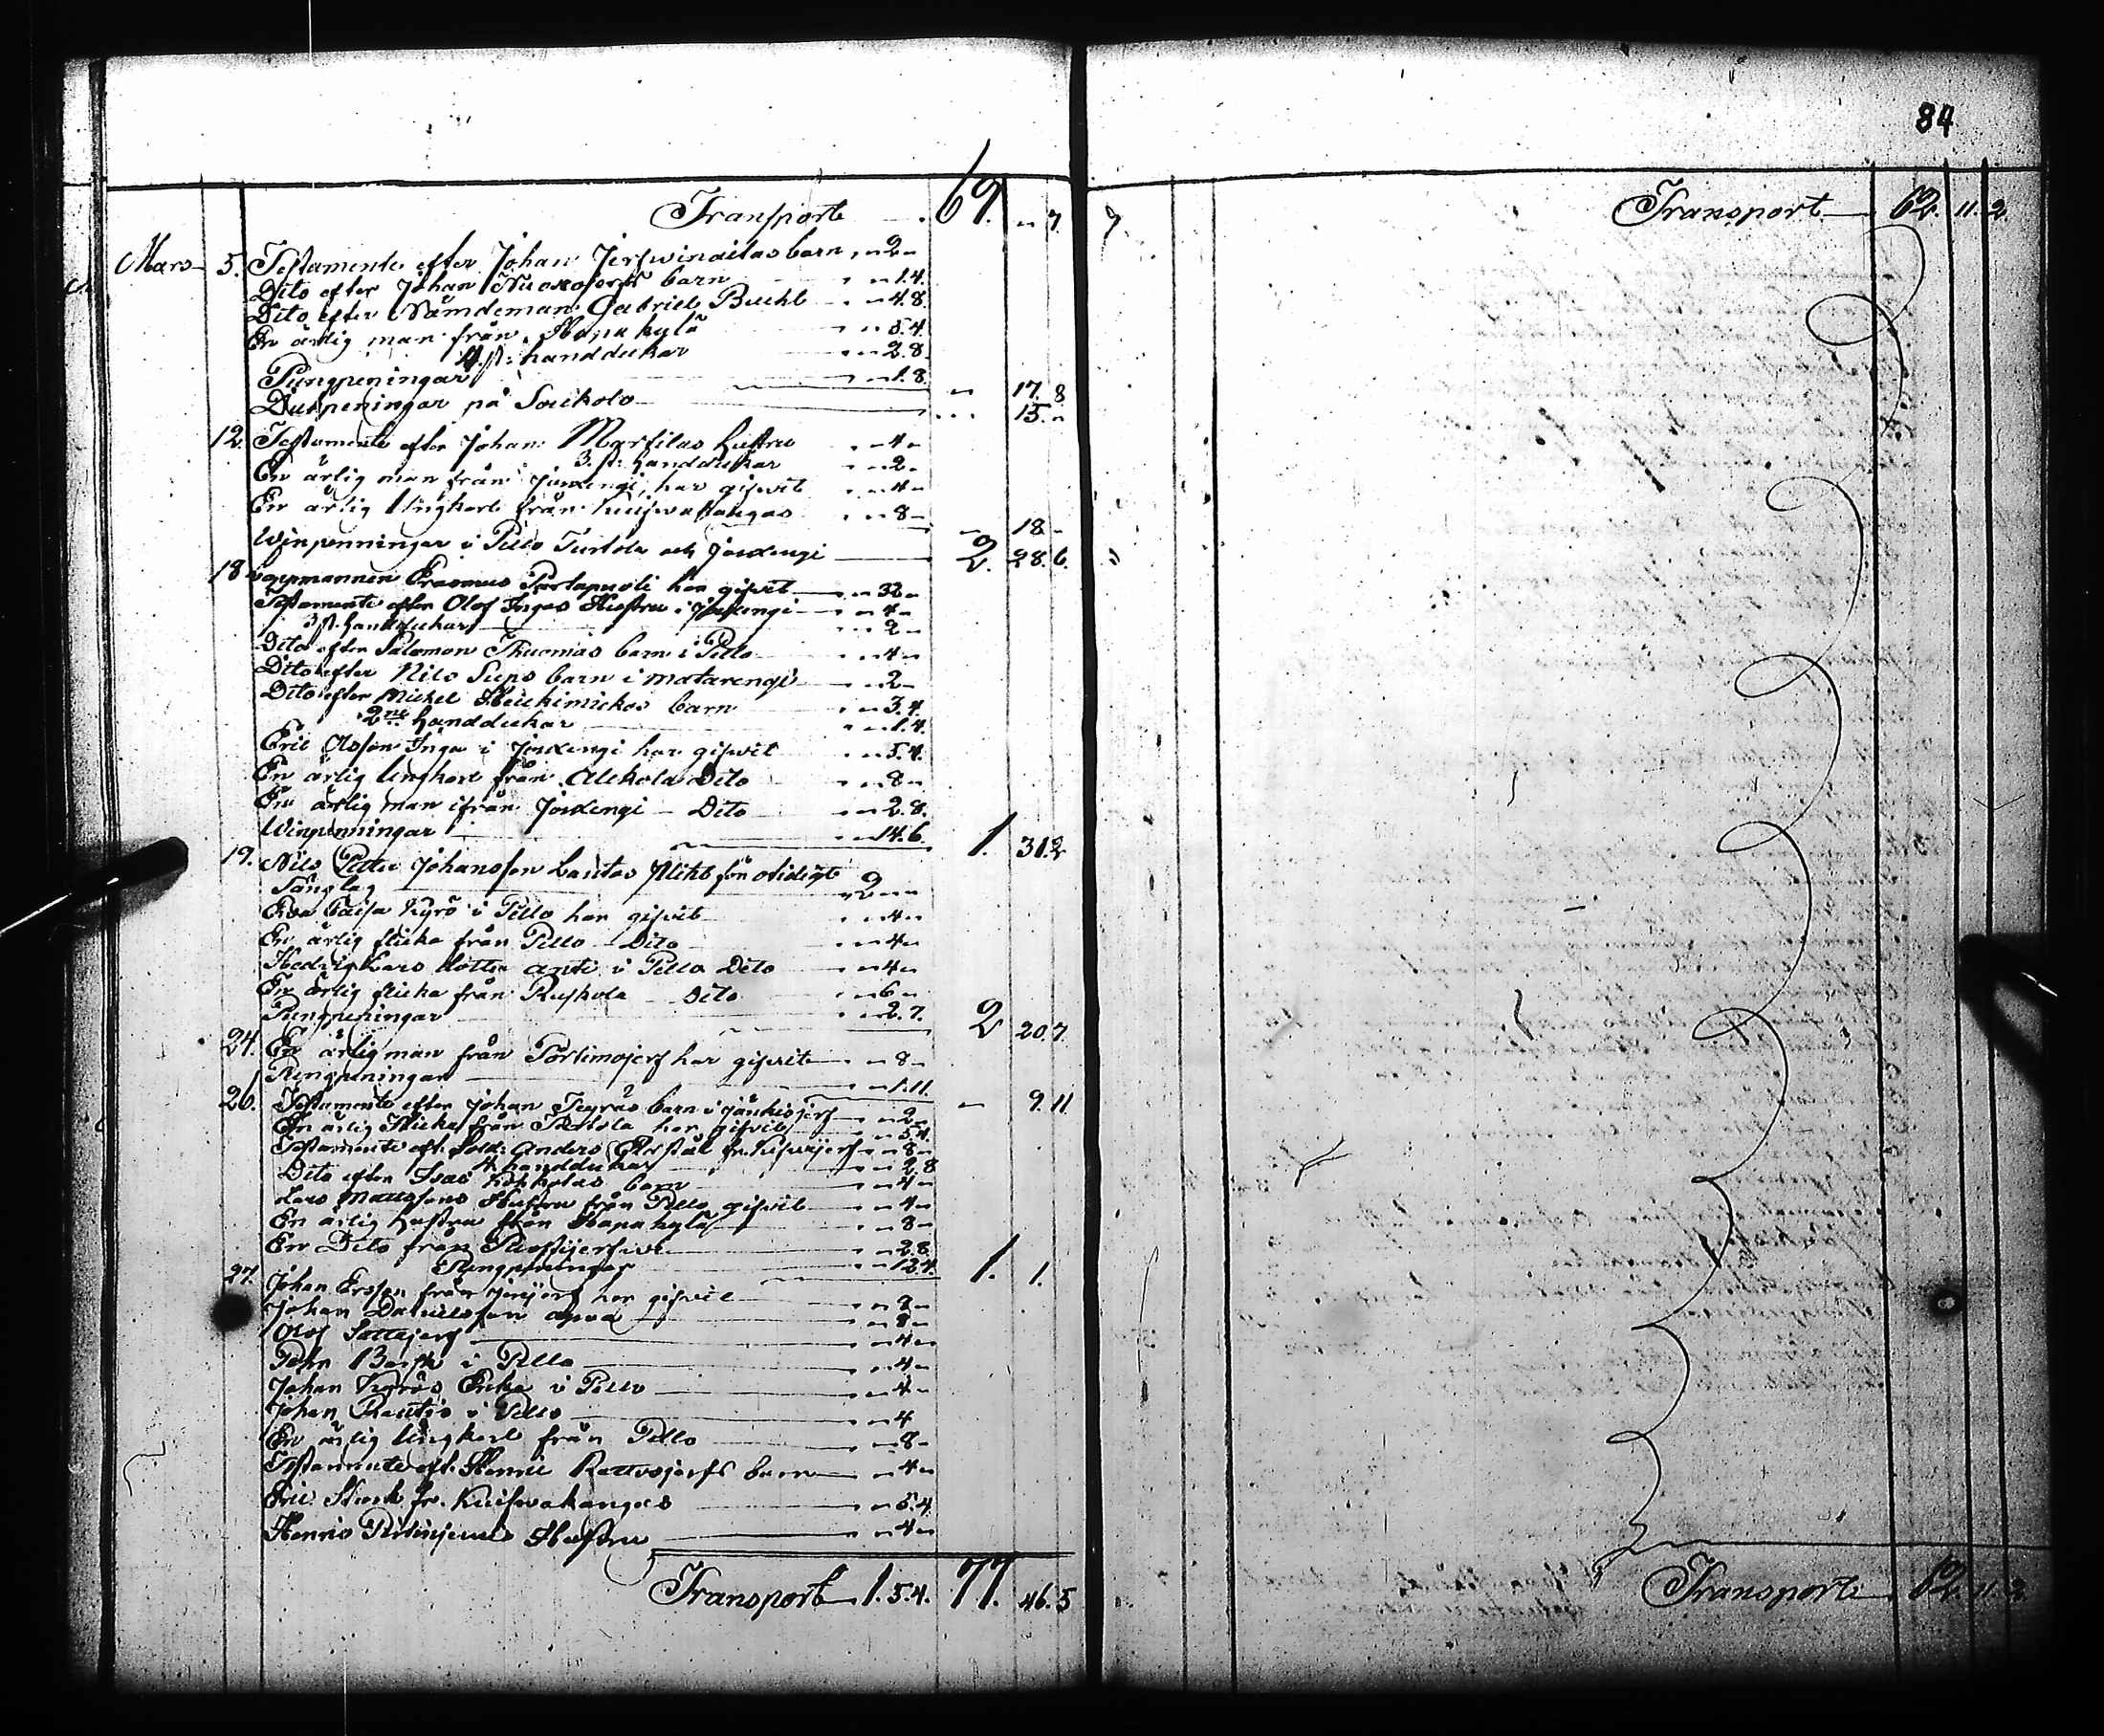 84
Transport 69. " 7.
Mars 5. Testamente efter Johan Jerfwinailas barn " 2 "
Dito efter Johan Kuoxojerfs barn " 1.4.
Dito efter Nämdeman Gabriel Bucht " 4.8.
En ärlig man från Hapakylä " 5.4
4 st: handdukar " 2.8
Pungpeningar " 1.8. " 17. 8
Dukpeningar på Loukolo " 15. "
12. Testamente efter Johan Martilas hustru " 4 "
3. st: handdukar " 2 "
En ärlig man från Juoxengi har gifvit " 4 "
En ärlig Ungkarl från Kuifwakangas " 8 " " 18 "
Winpenningar i Pello Turtola och Joxengi 2. 28. 6.
18 Erasmus Portapuoli har gifvit " 32 "
Testamente efter Olof Ingas Hustru i Joxengi " 4 "
3 st. handdukar " 2 "
Dito efter Salomon Thuomas barn i Pello " 4 "
Dito efter Nils Sups barn i Matarengi " 2 "
Dito efter Mickel Heickimickos barn " 3.4.
2ne handdukar " 1.4.
Eric Olofson Inga i Joxengi har gifvit " 5.4.
En ärlig Ungkarl från Alckola Dito " 8 "
En ärlig man ifrån Joxengi – Dito " 2.8.
Winpenningar " 14.6. 1. 31.2
19. Nils Petter Johansson Lautas Plikt för otidigt
Sänglag 2 " "
Eva Caisa Kyrö i Pello har gifvit " 4 "
En ärlig flicka från Pello – Dito " 4 "
Hedvig Lars dotter Anti i Pello Dito " 4 "
En ärlig flicka från Ruskola – Dito " 6 "
Pungpeningar " 2.7. 2 20.7.
24. En ärlig man från Portimojerf har gifvit " 8 "
Pungpeningar " 1.11. " 9. 11
26. Testamente efter Johan Tegräs barn i Jänkisjerf " 2 "
En ärlig Flicka från Turtola har gifvit " 5.4.
Testamente eft. Sold: Anders " 8 "
4 handdukar " 2.8
Dito efter Isac Kokkolas barn " 4 "
Lars Matssons Hustru från Pello gifvit " 4 "
En ärlig hustru från Hapakylä " 8 "
En Dito från " 2.8.
Pungpeningar " 13.4. 1. 1.
27. Johan Ersson från har gifvit " 8 "
Johan Danielsson " 8 "
Olof Sattajerf " 4 "
Pehr i Pello " 4 "
Johan Kyrös Enka i Pello " 4 "
Johan Rautio i Pello " 4
En ärlig Ungkarl från Pello " 8 "
Testamente eft. Henric Rattosjerfs barn " 4 "
Eric Stark fr. Kuifwakangas " 5.4.
Henric Hustru " 4 "
Transport 1.5.4. 77. 46.5
Transport 62. 11. 2
Transport 62. 11. 2.